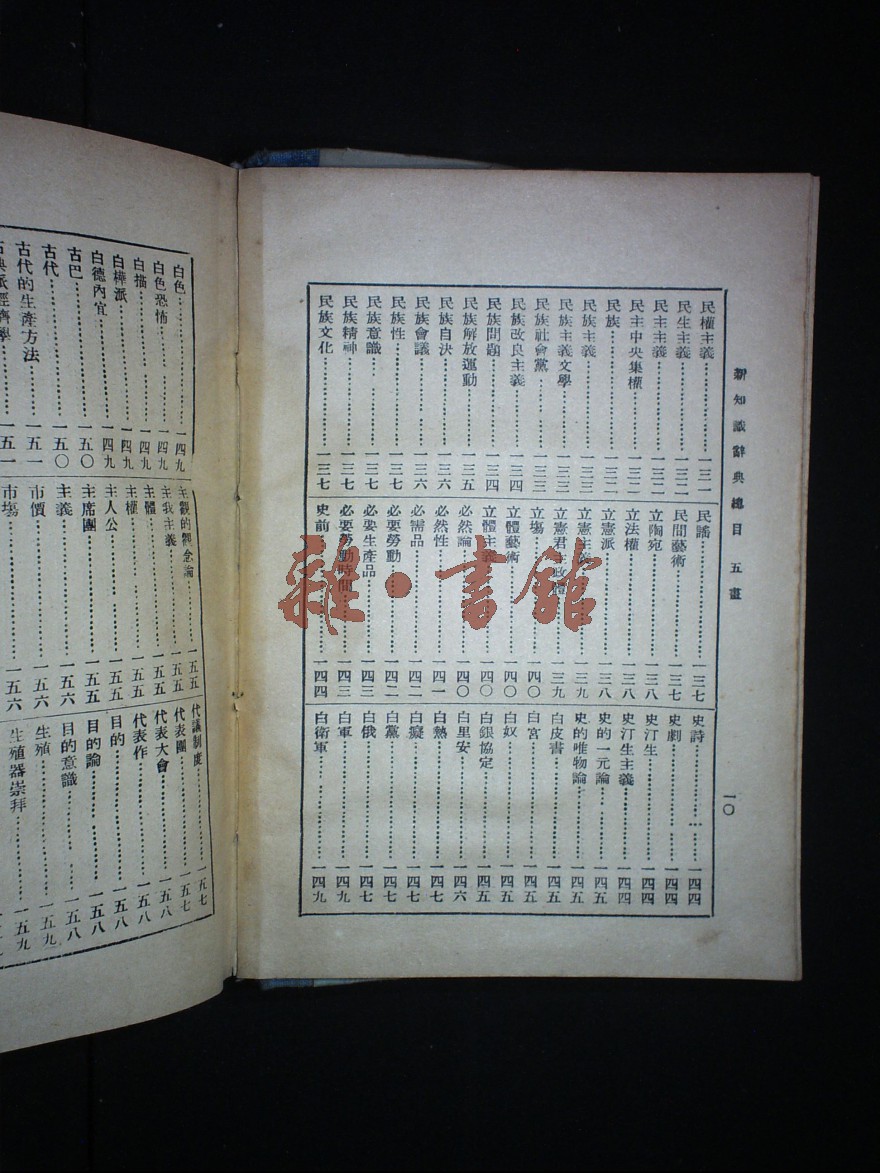 新知識辭典總目 五畫
一〇
民權主義 一三一
民生主義 一三二
民主主義 一三二
民主中央集權 一三二
民族 一三二
民族主義
民族主義文學
民族社會黨 一三三
民族改良主義 一三四
民族問題 一三四
民族解放運動 一三五
民族自決 一三六
民族會議 一三六
民族性 一三七
民族意識 一三七
民族精神 一三七
民族文化 一三七
民謠 一三七
民間藝術 一三七
立陶宛 一三八
立法權 一三八
立憲派 一三八
立憲主義 一三九
立憲君主政體 一三九
立場 一四〇
立體藝術 一四〇
立體主義 一四〇
必然論 一四〇
必然性 一四一
必需品 一四二
必要勞動 一四二
必要生產品 一四三
必要勞動時間 一四三
史前 一四四
史詩 一四四
史劇 一四四
史汀生 一四四
史汀生主義 一四四
史的一元論 一四五
史的唯物論 一四五
白皮書 一四五
白宮 一四五
白奴 一四五
白銀協定 一四五
白里安 一四六
白熱 一四七
白癡 一四七
白黨 一四七
白俄 一四七
白軍 一四九
白衛軍 一四九
白色 一四九
白色恐怖 一四九
白描 一四九
白樺派 一四九
白德內宜 一四九
古巴 一五〇
古代 一五〇
古代的生產方法 一五一
古典派經濟學 一五一
主觀的觀念論 一五五
主我主義 一五五
主體 一五五
主權 一五五
主人公 一五五
主席團 一五五
主義 一五六
市價 一五六
市場 一五六
代議制度 一五七
代表團 一五七
代表大會 一五八
代表作 一五八
目的 一五八
目的論 一五八
目的意識 一五八
生殖 一五九
生殖器崇拜 一五九
雜·書館